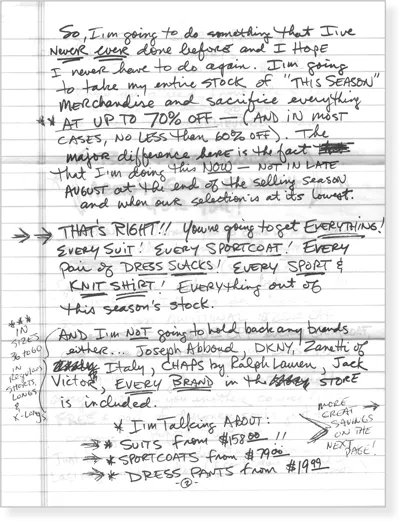 So, I'm going to do something that I've
NEVER EVER done before and I HOPE
I never have to do again. I'm going
to take my entire stock of "THIS SEASON"
MERCHANDISE and sacrifice everything
** AT UP TO 70% OFF — (AND IN MOST
CASES, NO LESS than 60% OFF). The
major difference here is the fact
that I'm doing this NOW — NOT IN LATE
AUGUST at the end of the selling season
and when our selection is at its lowest.
→→ THAT'S RIGHT!! You're going to get EVERYTHING!
EVERY SUIT! EVERY SPORTCOAT! EVERY
Pair of DRESS SLACKS! EVERY SPORT &
KNIT SHIRT! EVERYthing out of
this season's stock.
***
IN
SIZES
36 to 60
IN
Regulars
SHORTS,
LONGS
&
X-Longs
AND I'm NOT going to hold back any brands
either... Joseph Abboud, DKNY, Zanetti of
Italy, CHAPS by Ralph Lauren, Jack
Victor, EVERY BRAND in the STORE
is included.
* I'm Talking ABOUT:
→* SUITS from $158.00 !!
→* SPORTCOATS from $79.00
→* DRESS PANTS from $19.99
MORE
GREAT
SAVINGS
ON THE
NEXT
PAGE!